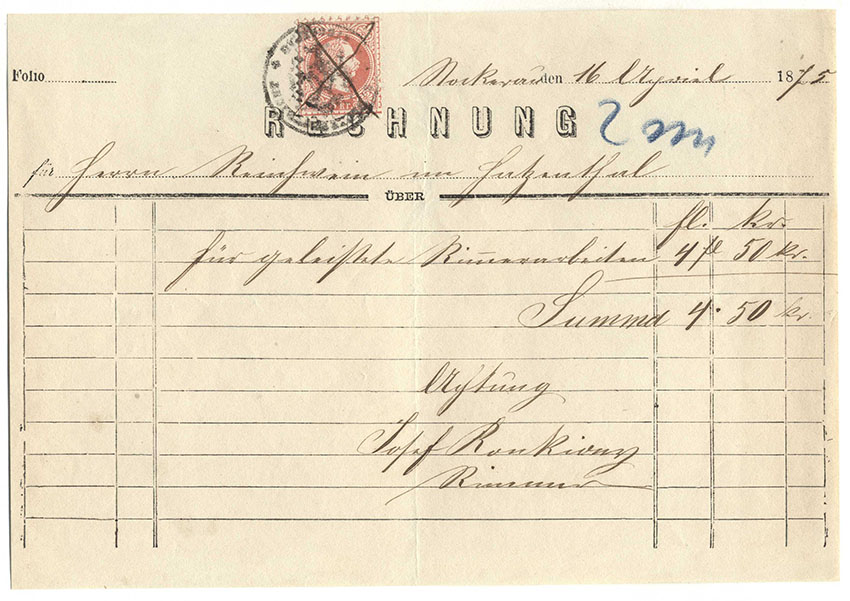 Folio
Stockerau den 16 Apriel 1875
RECHNUNG
für Herrn Reichwein in Hatzenthal
ÜBER
fl. kr.
für geleistete Riemerarbeiten 4 fl 50 kr.
Summa 4. 50 kr.
Achtung
Josef
Riemer